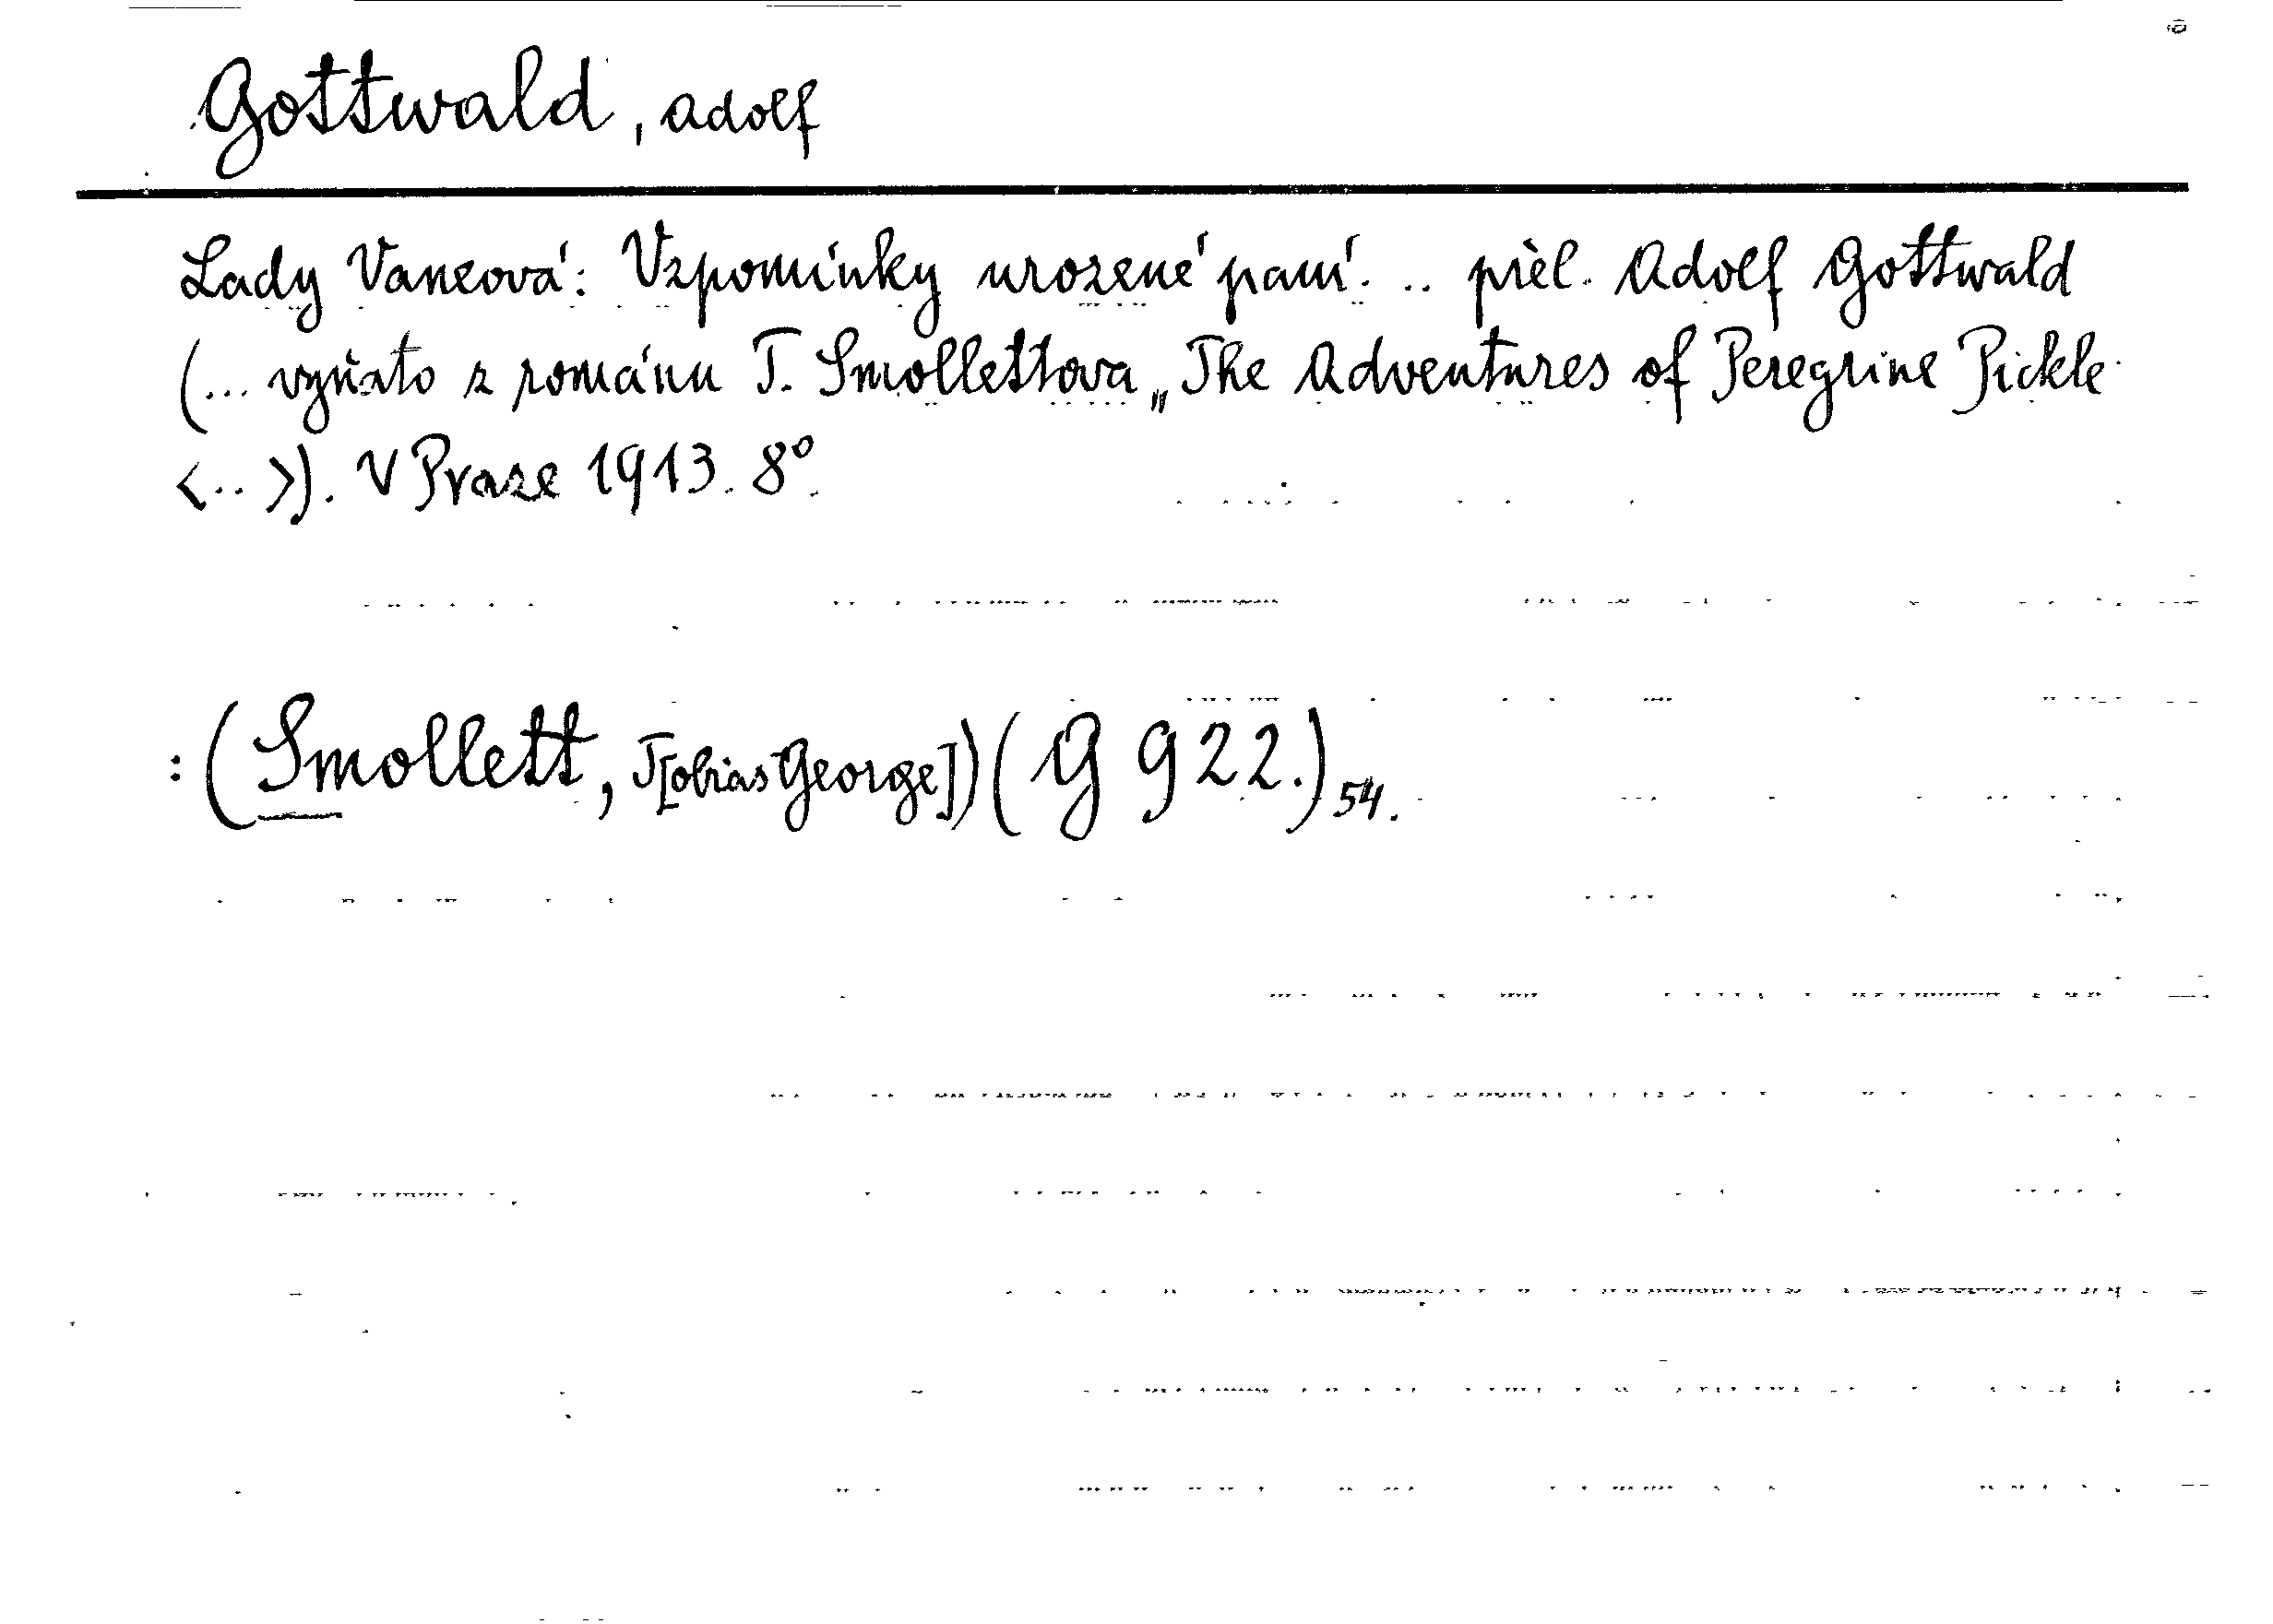 Gottwald, Adolf
Lady Vaneová: Vzpomínky urozené paní. .. přel. Adolf Gottwald
(... vyňato z románu T. Smollettova „The Adventures of Peregrine Pickle
<..>). V Praze 1913. 8°.
: (Smollett, T[obias George]) (G 922.) 54.